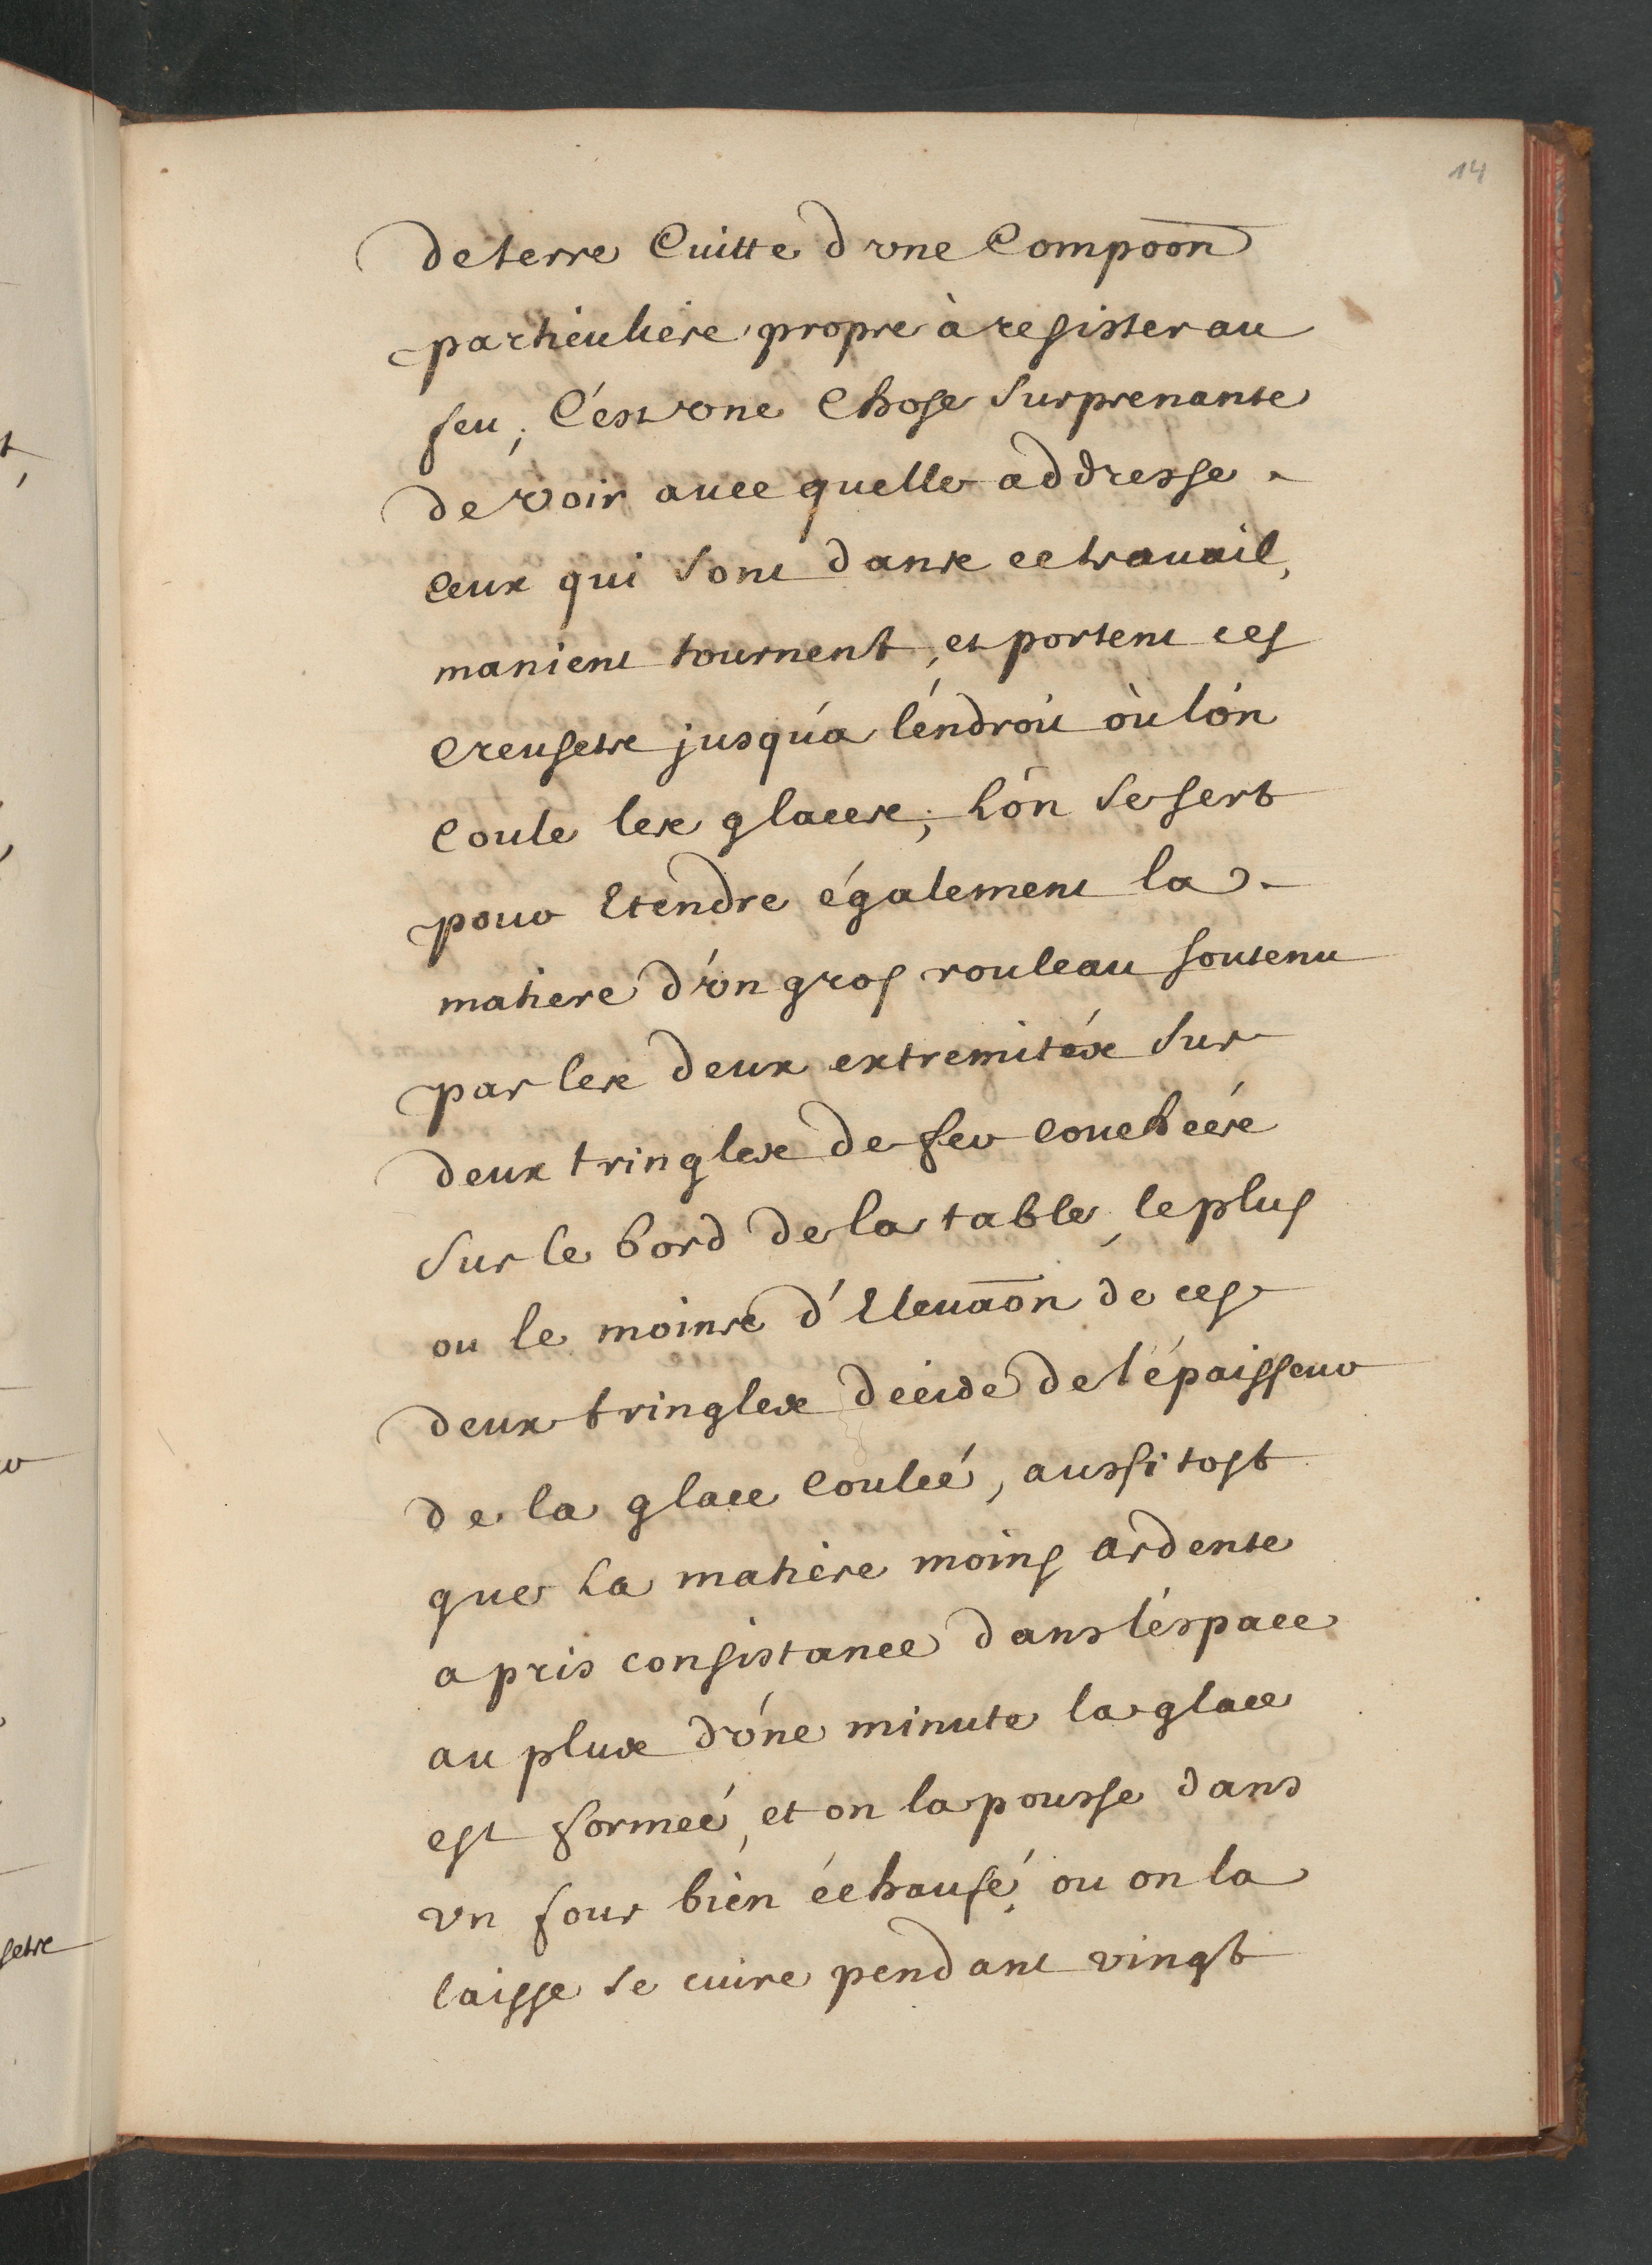 14
de terre Cuitte d'vne Compōon
particuliere propre à resister au
feu; C'est vne Chose surprenante
de voir auec quelle addresse
Ceux qui sont dans ce trauail,
manient tournent, et portent ces
Creusets jusqu'a l'éndroit où l'ón
Coule les glaces; L'ón se sert
pour Etendre également la
matiere d'vn gros rouleau soutenu
par les deux extremités sur
deux tringles de fer couchées
sur le bord de la table, le plus
ou le moins d'Eleuāon de ces
deux tringles decide de l'épaisseur
de la glace Couleé, aussi tost
que La matiere moins ardente
a pris consistance dans l'éspace
au plus d'vne minute la glace
est formeé, et on la pousse dans
vn four bien échaufé, ou on la
laisse se cuire pendant vingt